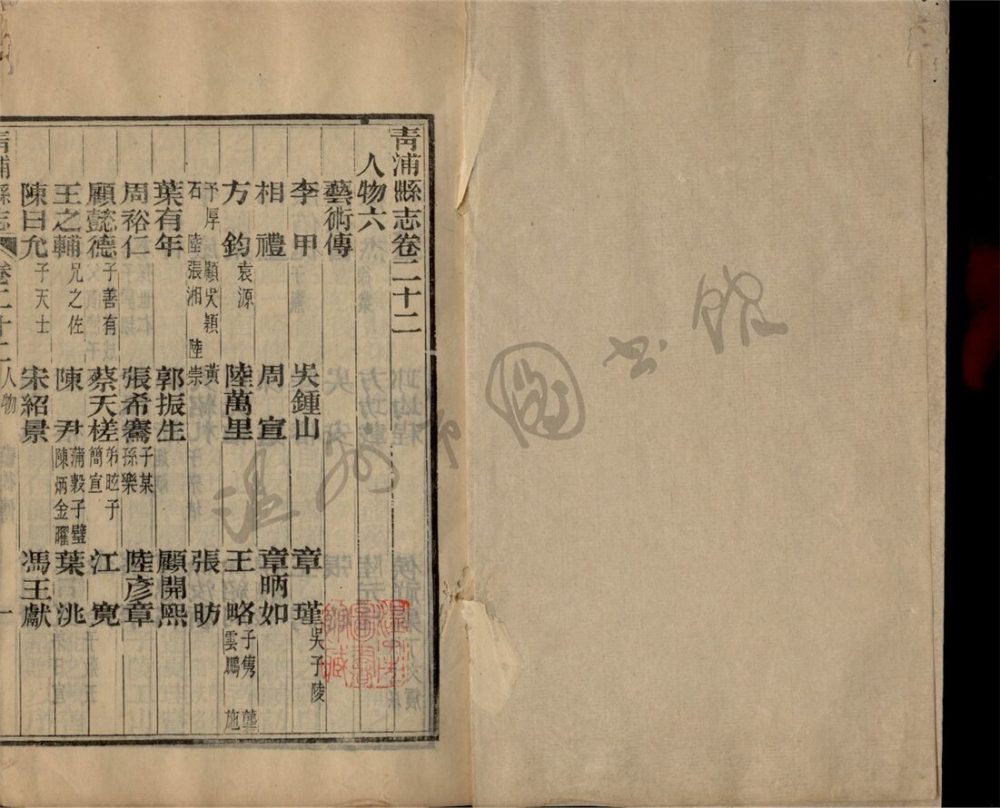 青浦縣志卷二十二
人物六
藝術傳
李甲 吳鍾山 章瑾 吳子陵
相禮 周宣 章昞如
方鈞 袁源 陸萬里 王略 子雋 龔雲鵬 施
于厚 顧吳穎 黃石 陸張湘 陸崇 張昉
葉有年 郭振生 顧開熙
周裕仁 張希騫 子某 孫樂 陸彥章
顧懿德 子善有 蔡天槎 弟昡子 簡宣 江寬
王之輔 兄之佐 陳尹 蒲穀子璧 陳炳金曜 葉洮
陳曰允 子天士 宋紹景 馮王獻
青浦縣志 卷二十二 人物 一
溫州市圖書館